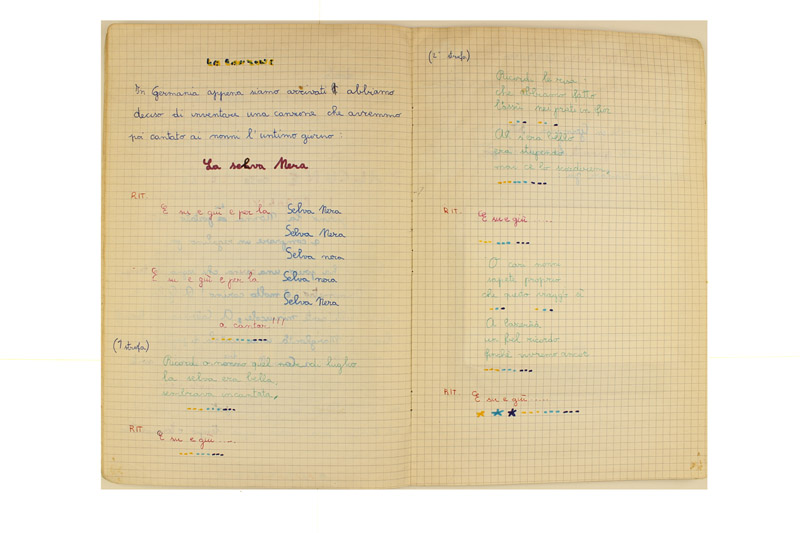 La canzone
In Germania appena siamo arrivati abbiamo
deciso di inventare una canzone che avremmo
poi cantato ai nonni l'untimo giorno:
La selva Nera
RIT.
E su e giù e per la Selva Nera
Selva Nera
Selva nera
E su e giù e per la Selva nera
Selva Nera
a cantar!!!
(1 strofa)
quel di luglio
la selva era bella,
sembrava incantata,
RIT. E su e giù .....
(2° strofa)
che abbiamo fatto
nei prati in fior
era stupendo
RIT. E su e giù ...
O cari nonni
sapete proprio
che questo viaggio
un bel ricordo
RIT. E su e giù ....